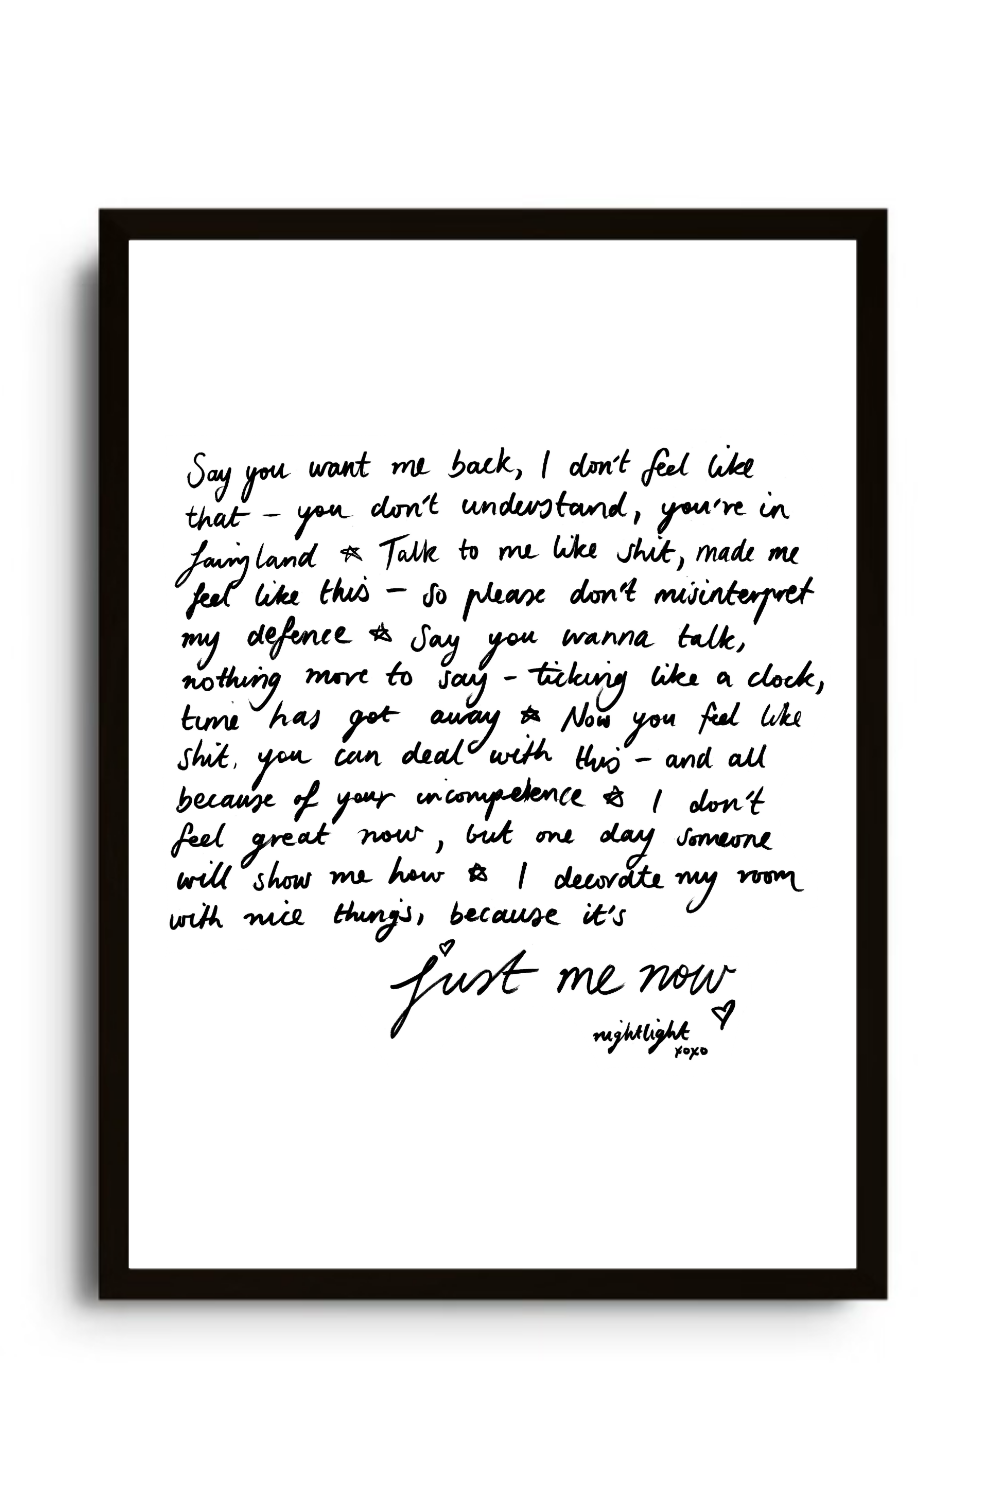 Say you want me back, I don't feel like
that – you don't understand, you're in
fairyland ☆ Talk to me like shit, made me
feel like this – so please don't misinterpret
my defence ☆ Say you wanna talk,
nothing more to say – ticking like a clock,
time has got away ☆ Now you feel like
shit, you can deal with this – and all
because of your incompetence ☆ I don't
feel great now, but one day someone
will show me how ☆ I decorate my room
with nice things, because it's
just me now
♡
nightlight
xoxo